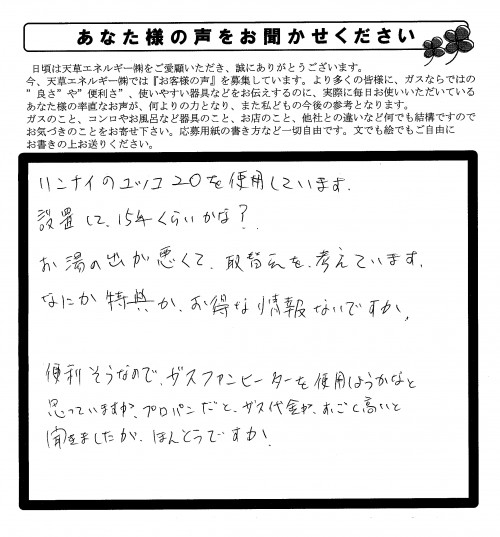 あなた様の声をお聞かせください
日頃は天草エネルギー㈱をご愛顧いただき、誠にありがとうございます。
今、天草エネルギー㈱では『お客様の声』を募集しています。より多くの皆様に、ガスならではの
”良さ”や”便利さ”、使いやすい器具などをお伝えするのに、実際に毎日お使いいただいている
あなた様の率直なお声が、何よりの力となり、また私どもの今後の参考となります。
ガスのこと、コンロやお風呂など器具のこと、お店のこと、他社との違いなど何でも結構ですので
お気づきのことをお寄せ下さい。応募用紙の書き方など一切自由です。文でも絵でもご自由に
お書きの上お送りください。
リンナイのユッコ20を使用しています.
設置して、15年くらいかな？
お湯の出が悪くて、取替えを、考えています.
なにか特典か、お得な情報ないですか,
便利そうなので、ガスファンヒーターを使用しようかなと
思っていますが、プロパンだと、ガス代金が、すごく高いと
聞きましたが、ほんとうですか,